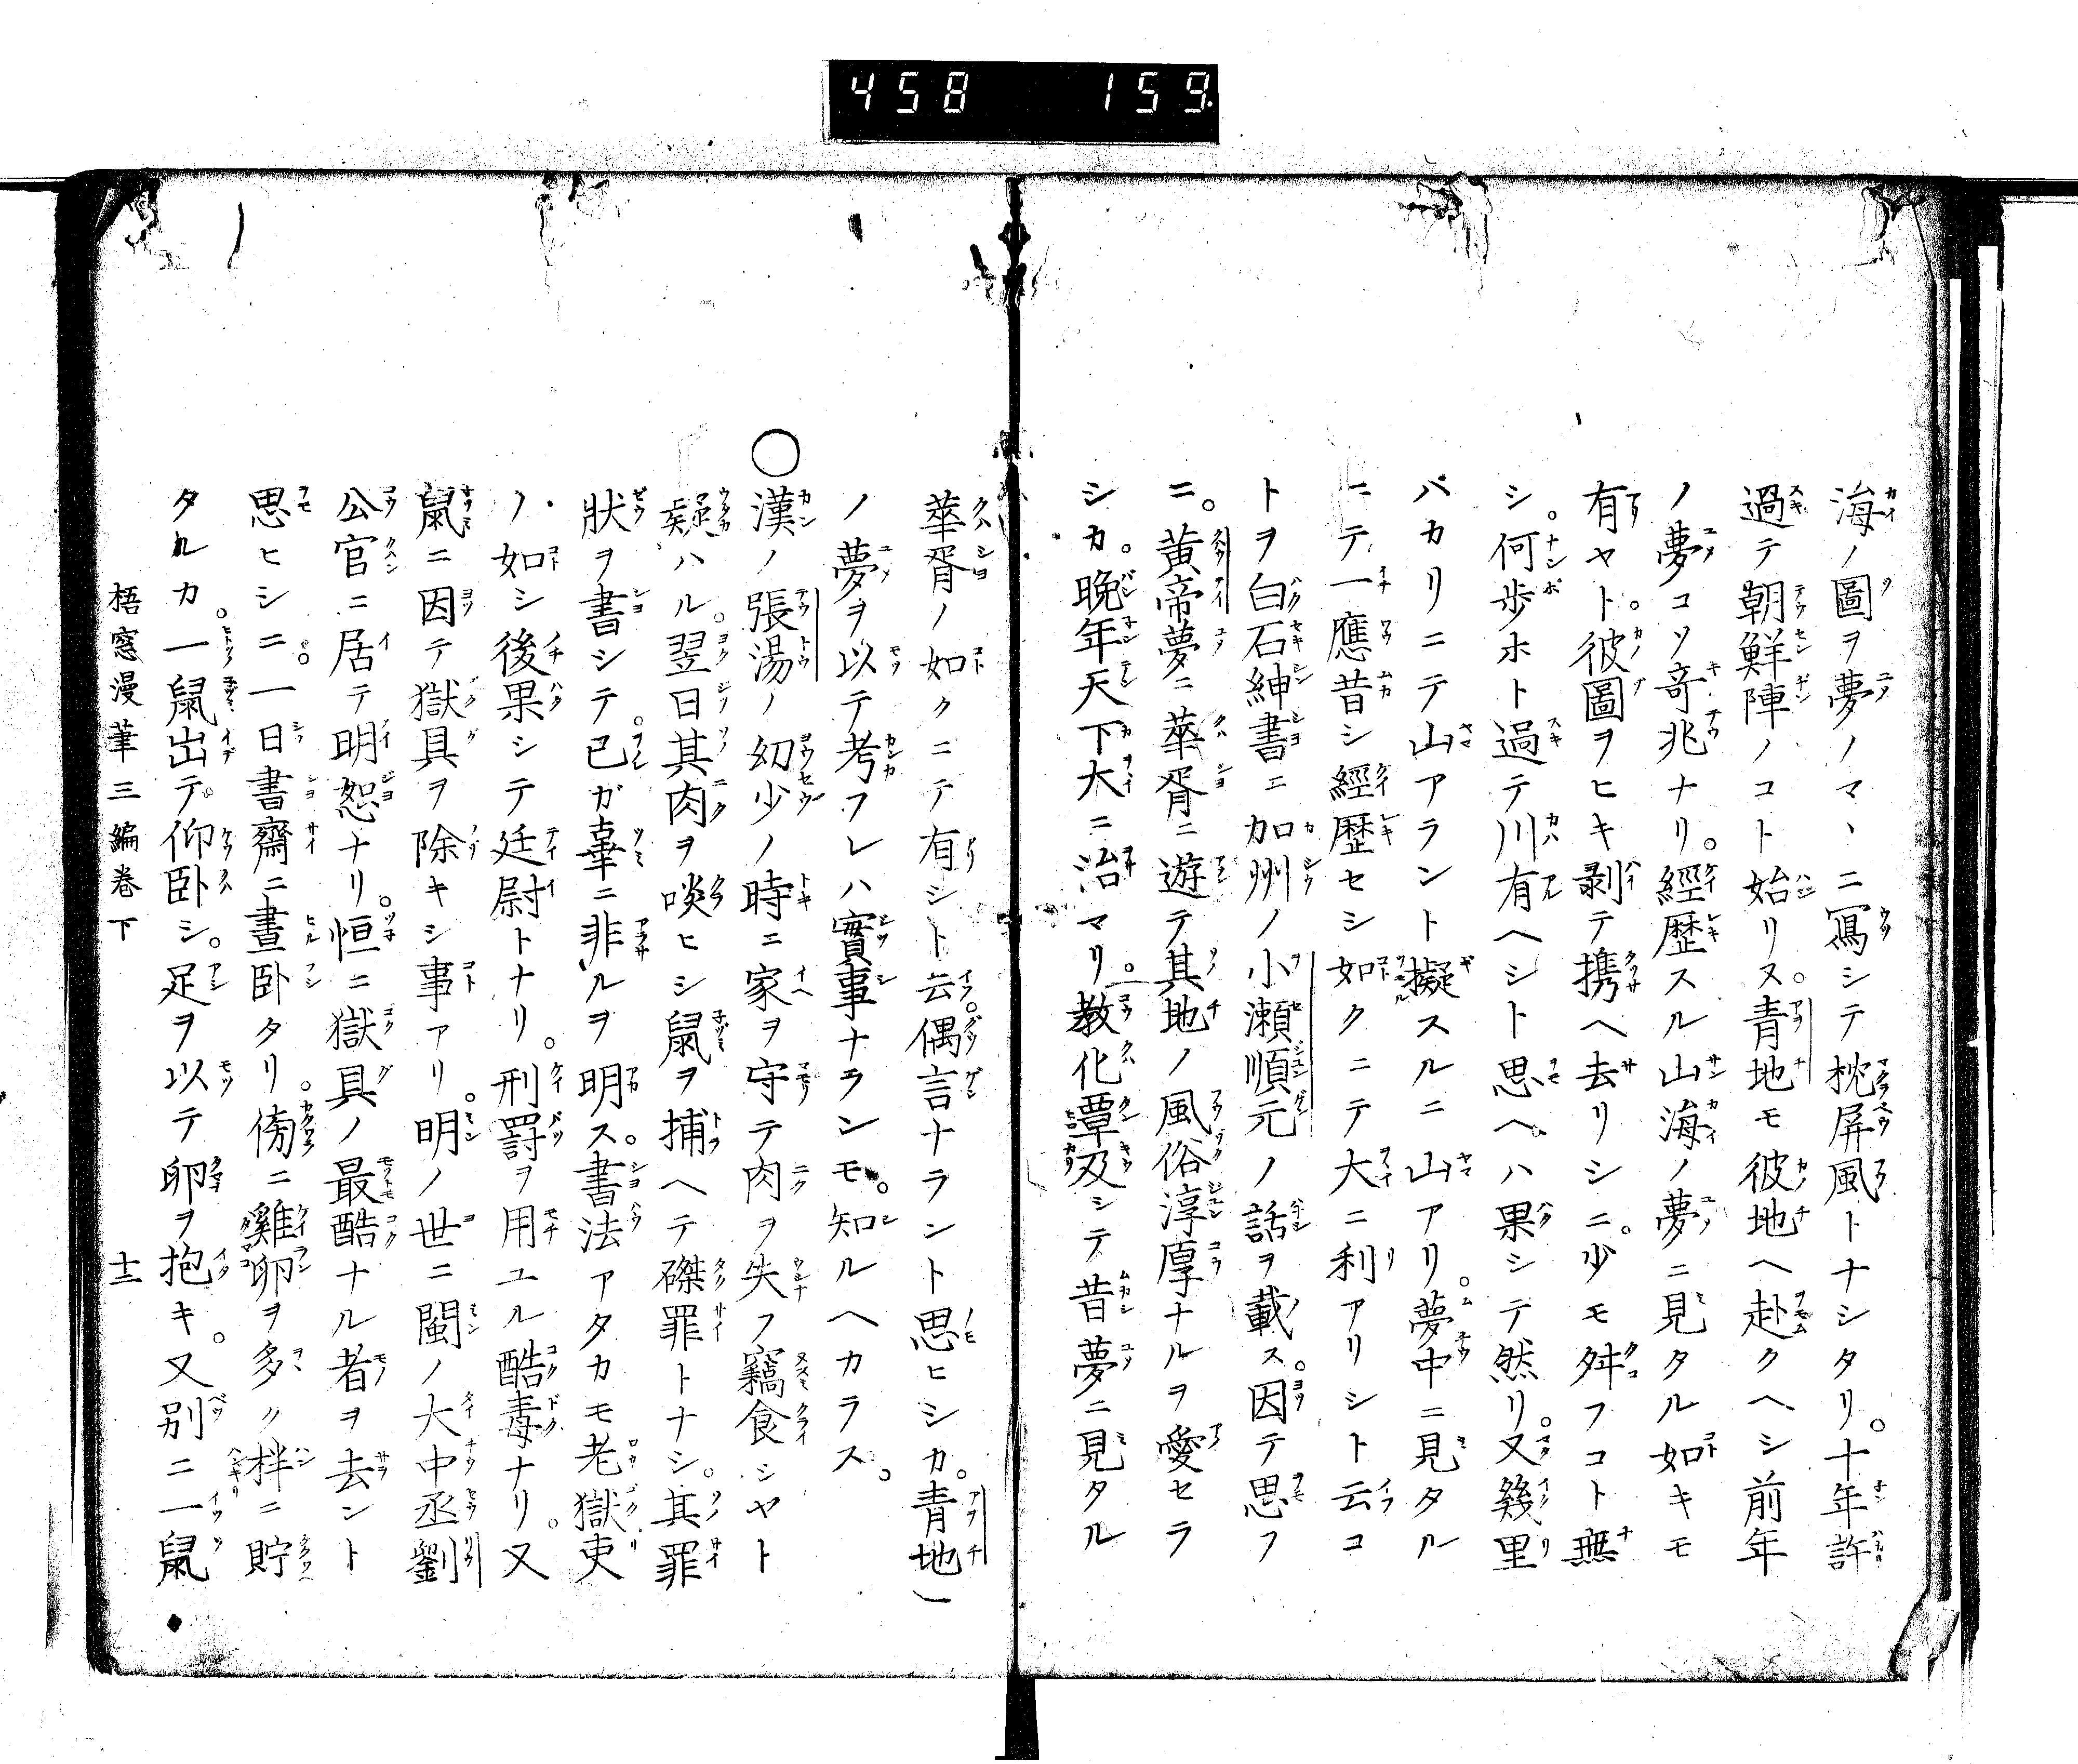 458 159
海ノ圖ヲ夢ノマヽニ寫シテ枕屏風トナシタリ。十年許
過テ朝鮮陣ノコト始リヌ。青地モ彼地ヘ赴クヘシ前年
ノ夢コソ竒兆ナリ。經歴スル山海ノ夢ニ見タル如キモ
有ヤト。彼圖ヲヒキ剥テ携ヘ去リシニ。少モ舛フコト無
シ。何歩ホト過テ川有ヘシト思ヘハ果シテ然リ。又幾里
バカリニテ山アラント擬スルニ山アリ。夢中ニ見タル
ニテ一應昔シ經歴セシ如クニテ大ニ利アリシト云コ
トヲ白石紳書ニ加州ノ小瀬順元ノ話ヲ載ス。因テ思フ
ニ。黄帝夢ニ華胥ニ遊テ其地ノ風俗淳厚ナルヲ愛セラ
シカ。晩年天下大ニ治マリ。教化覃及シテ昔夢ニ見タル
華胥ノ如クニテ有シト云。偶言ナラント思ヒシカ。青地一
ノ夢ヲ以テ考フレハ實事ナランモ。知ルヘカラス。
○漢ノ張湯ノ幼少ノ時ニ家ヲ守テ肉ヲ失フ竊食シヤト
疑ハル。翌日其肉ヲ啖ヒシ鼠ヲ捕ヘテ磔罪トナシ。其罪
狀ヲ書シテ。己ガ辠ニ非ルヲ明ス。書法アタカモ老獄吏
ノ如シ後果シテ廷尉トナリ。刑罸ヲ用ユル酷毒ナリ。又
鼠ニ因テ獄具ヲ除キシ事アリ。明ノ世ニ閩ノ大中丞劉
公官ニ居テ明恕ナリ。恒ニ獄具ノ最酷ナル者ヲ去ント
思ヒシニ。一日書齋ニ晝卧タリ。傍ニ雞卵ヲ多ク柈ニ貯
タルカ。一鼠出テ。仰卧シ。足ヲ以テ卵ヲ抱キ。又别ニ一鼠
梧窓漫筆三編卷下 十三